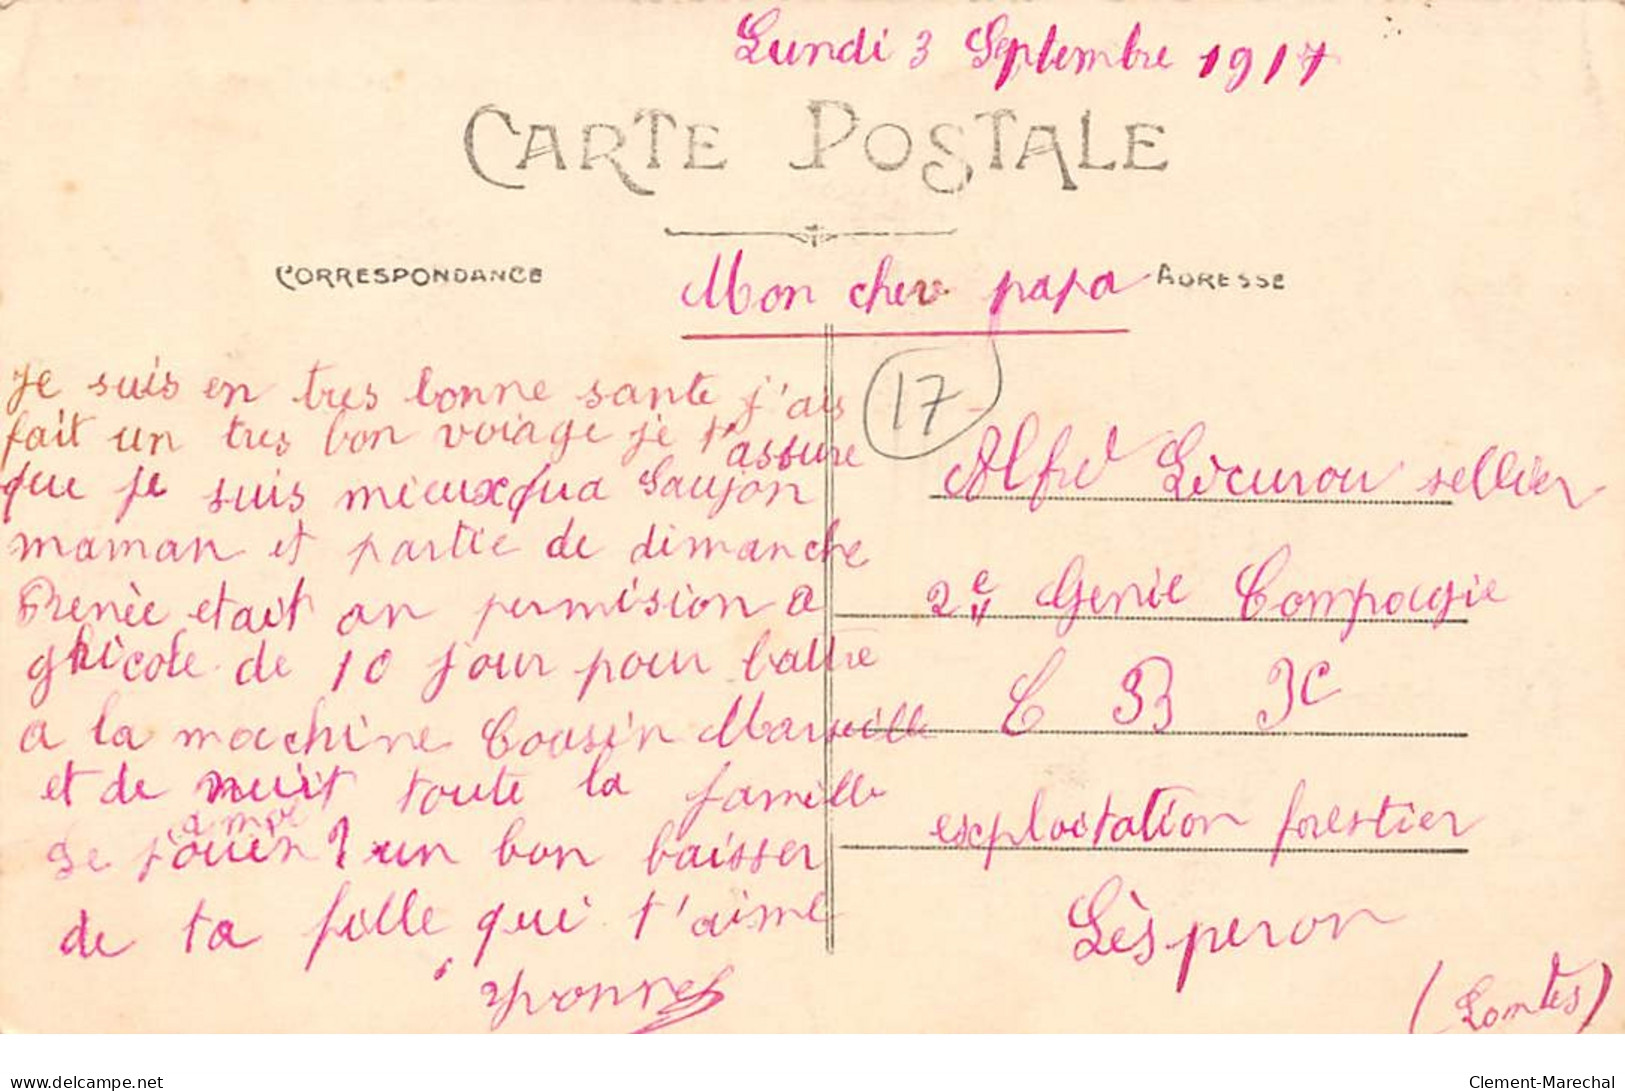 Lundi 3 Septembre 1917
CARTE POSTALE
CORRESPONDANCE
ADRESSE
Mon cher papa
17
Je suis en tres bonne sante j'ais
fait un tres bon voiage je t'assure
que je suis mieux qua Saujon
maman et partie de dimanche
Renèe etait an permision a
de 10 jour pour battre
a la machine Cousin Marseille
et de nuit toute la famille
se un bon baisser
de ta fille qui t'aime
Yvonne
Alfred sellier
2e Genie Compagie
C B
exploitation forestier
Lèsperon
(Landes)
delcampe.net
Clement-Marechal